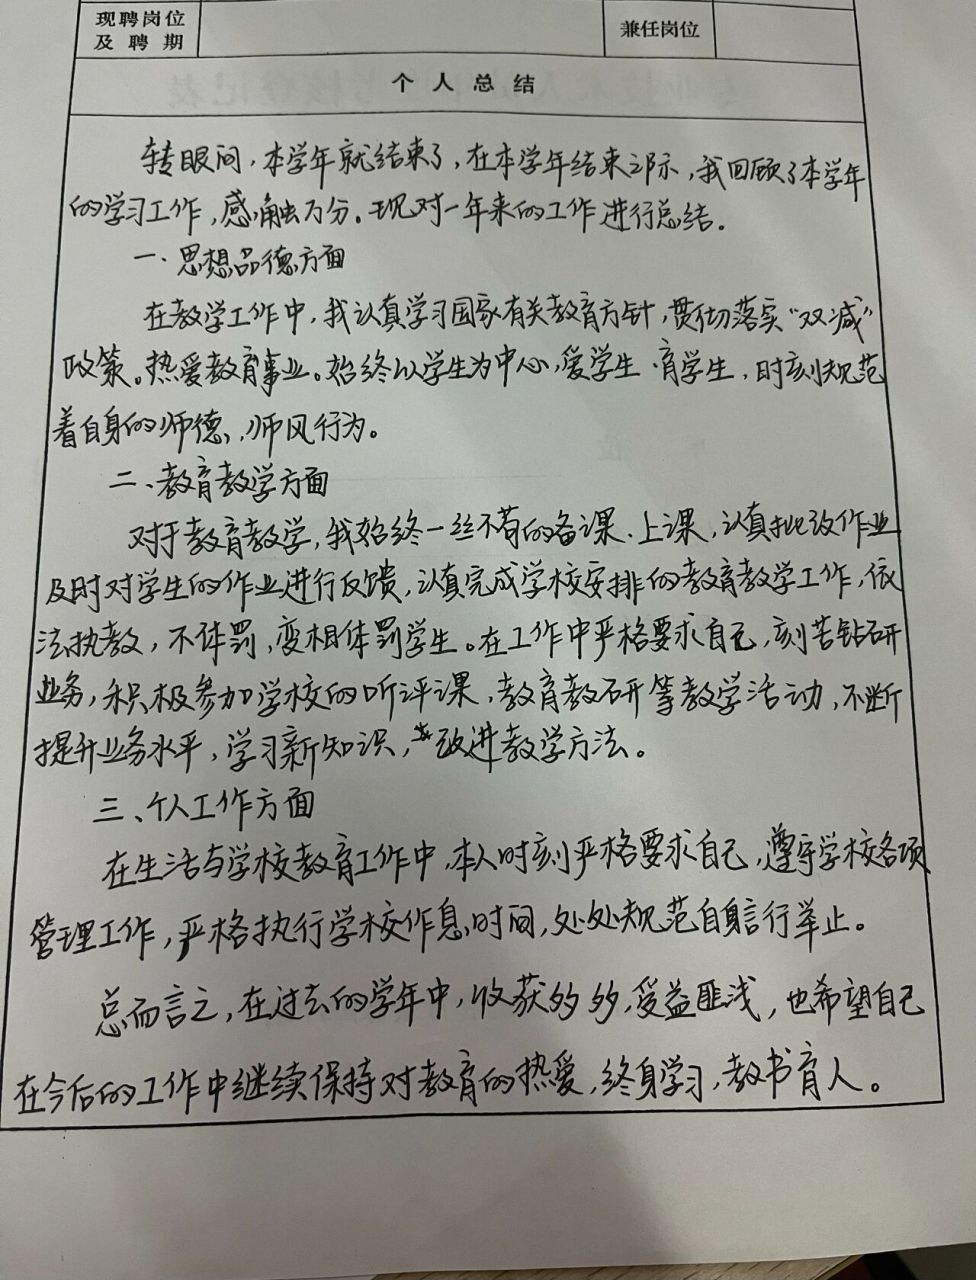 现聘岗位
及聘期
兼任岗位
个人总结
转眼间，本学年就结束了，在本学年结束之际，我回顾了本学年
的学习工作，感触万分。现对一年来的工作进行总结。
一、思想品德方面
在教学工作中，我认真学习国家有关教育方针，贯彻落实“双减”
政策。热爱教育事业。始终以学生为中心，爱学生、育学生，时刻规范
着自身的师德、师风行为。
二、教育教学方面
对于教育教学，我始终一丝不苟的备课、上课，认真批改作业
及时对学生的作业进行反馈，认真完成学校安排的教育教学工作，依
法执教，不体罚，变相体罚学生。在工作中严格要求自己，刻苦钻研
业务，积极参加学校的听评课，教育教研等教学活动，不断
提升业务水平，学习新知识，改进教学方法。
三、个人工作方面
在生活与学校教育工作中，本人时刻严格要求自己，遵守学校各项
管理工作，严格执行学校作息时间，处处规范自身言行举止。
总而言之，在过去的学年中，收获多多，受益匪浅，也希望自己
在今后的工作中继续保持对教育的热爱，终身学习，教书育人。